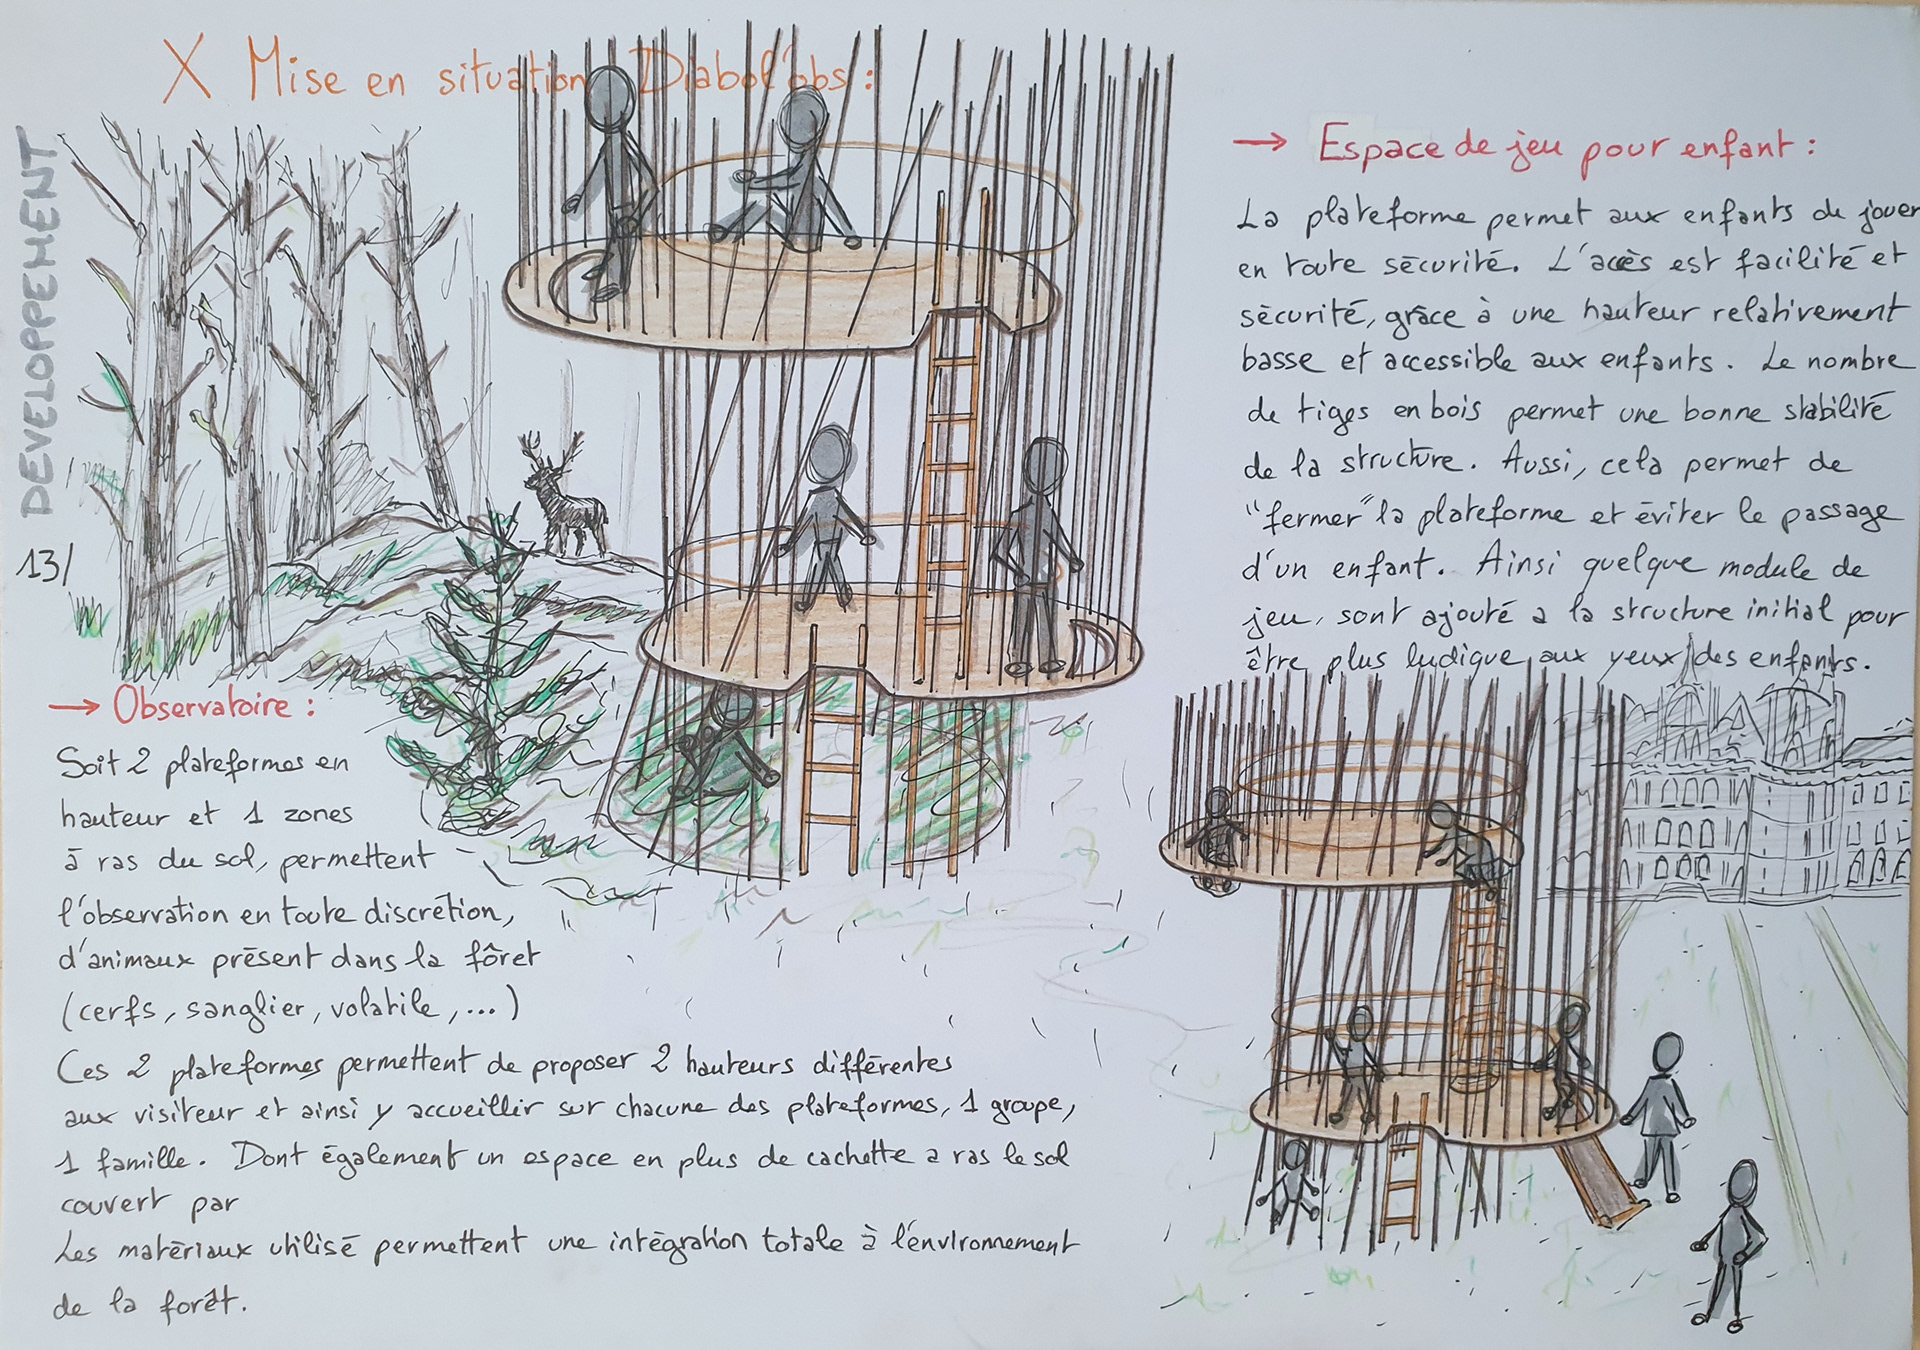 X Mise en situation Diabol'obs :
DEVELOPPEMENT
13/
→ Observatoire :
Soit 2 plateformes en
hauteur et 1 zones
à ras du sol, permettent
l'observation en toute discrétion,
d'animaux présent dans la fôret
(cerfs, sanglier, volatile, ...)
Ces 2 plateformes permettent de proposer 2 hauteurs différentes
aux visiteur et ainsi y accueillir sur chacune des plateformes, 1 groupe,
1 famille. Dont également un espace en plus de cachette a ras le sol
couvert par
Les matériaux utilisé permettent une intégration totale à l'environnement
de la forêt.
→ Espace de jeu pour enfant :
La plateforme permet aux enfants de jouer
en toute sécurité. L'accès est facilité et
sécurité, grâce à une hauteur relativement
basse et accessible aux enfants. Le nombre
de tiges en bois permet une bonne stabilité
de la structure. Aussi, cela permet de
"fermer" la plateforme et éviter le passage
d'un enfant. Ainsi quelque module de
jeu, sont ajouté a la structure initial pour
être plus ludique aux yeux des enfants.